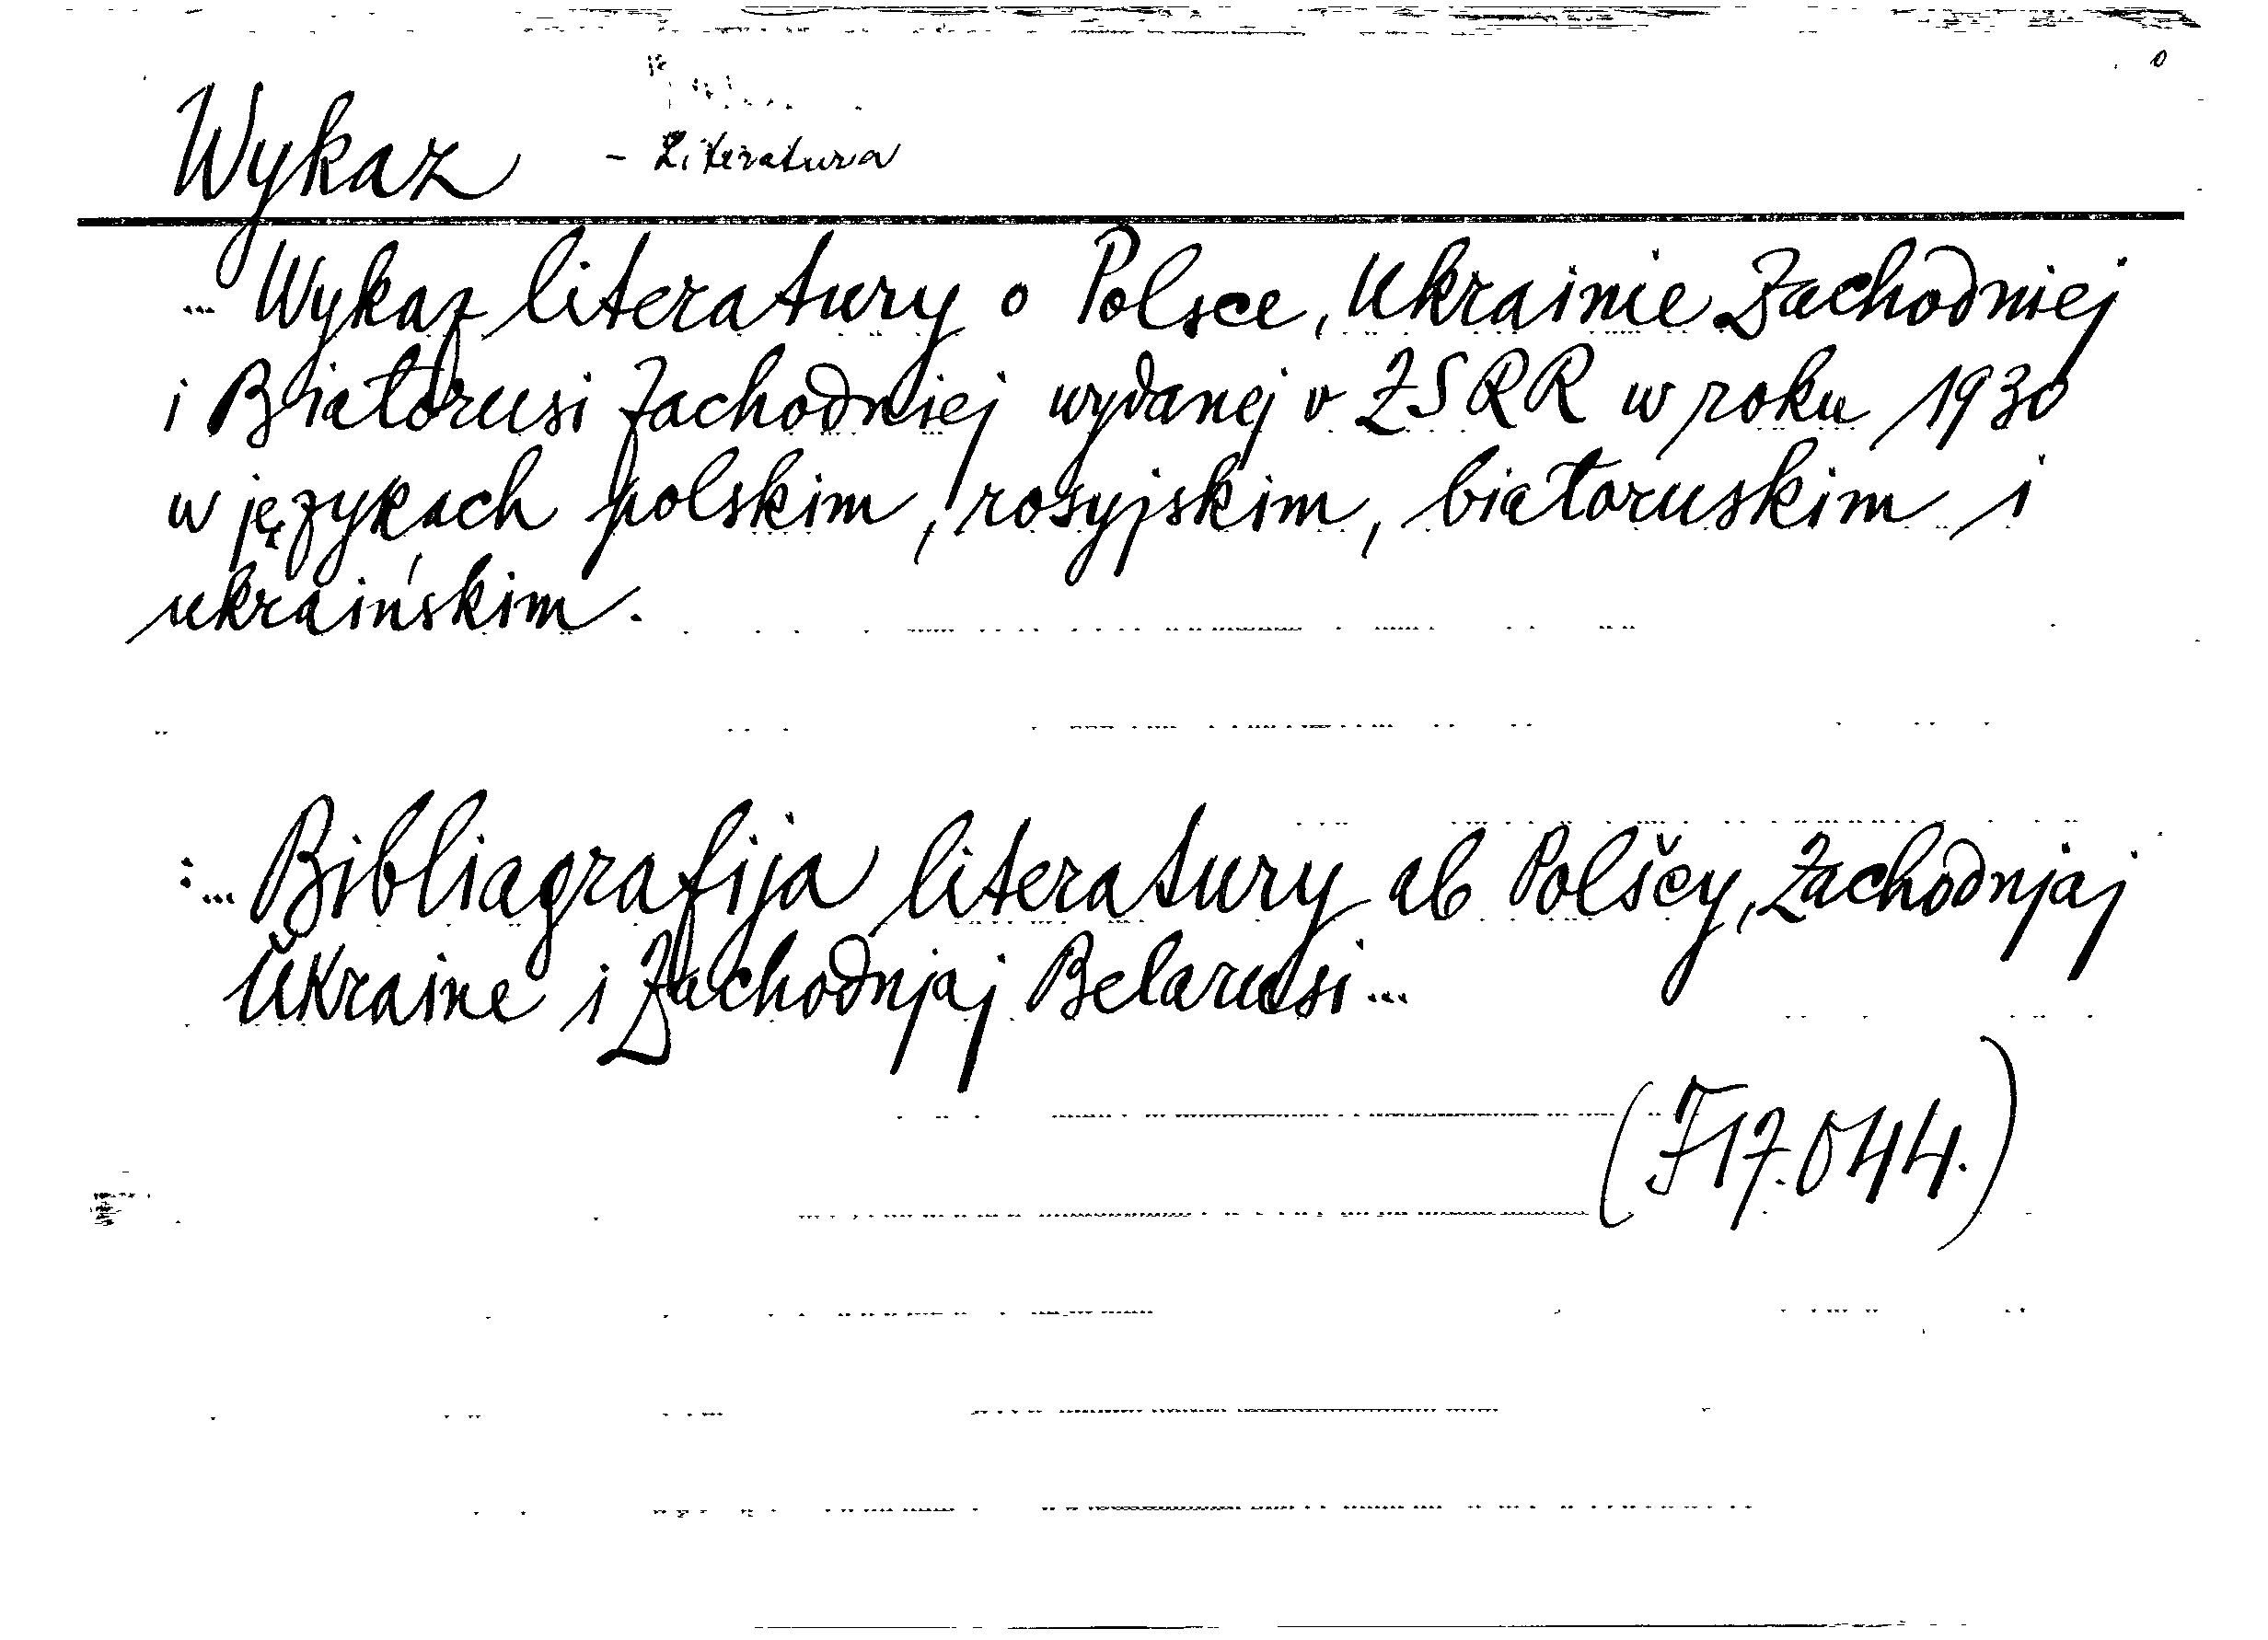 Wykaz - Literatura
... Wykaz literatury o Polsce, Ukrainie Zachodniej
i Białorusi Zachodniej wydanej v ZSRR w roku 1930
w językach polskim, rosyjskim, białoruskim i
ukraińskim.
:... Bibliagrafija literatury ab Polščy, Zachodnjaj
Ŭkraine i Zachodnjaj Belarusi...
(F17.044.)